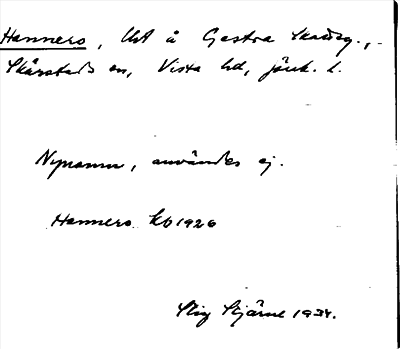 Hannero, lht å Gestra Skatteg.,
Skärstads sn, Vista hd, Jönk. l.
Nynamn, användes ej.
Hannero kb 1926
Stig Stjärne 1934.